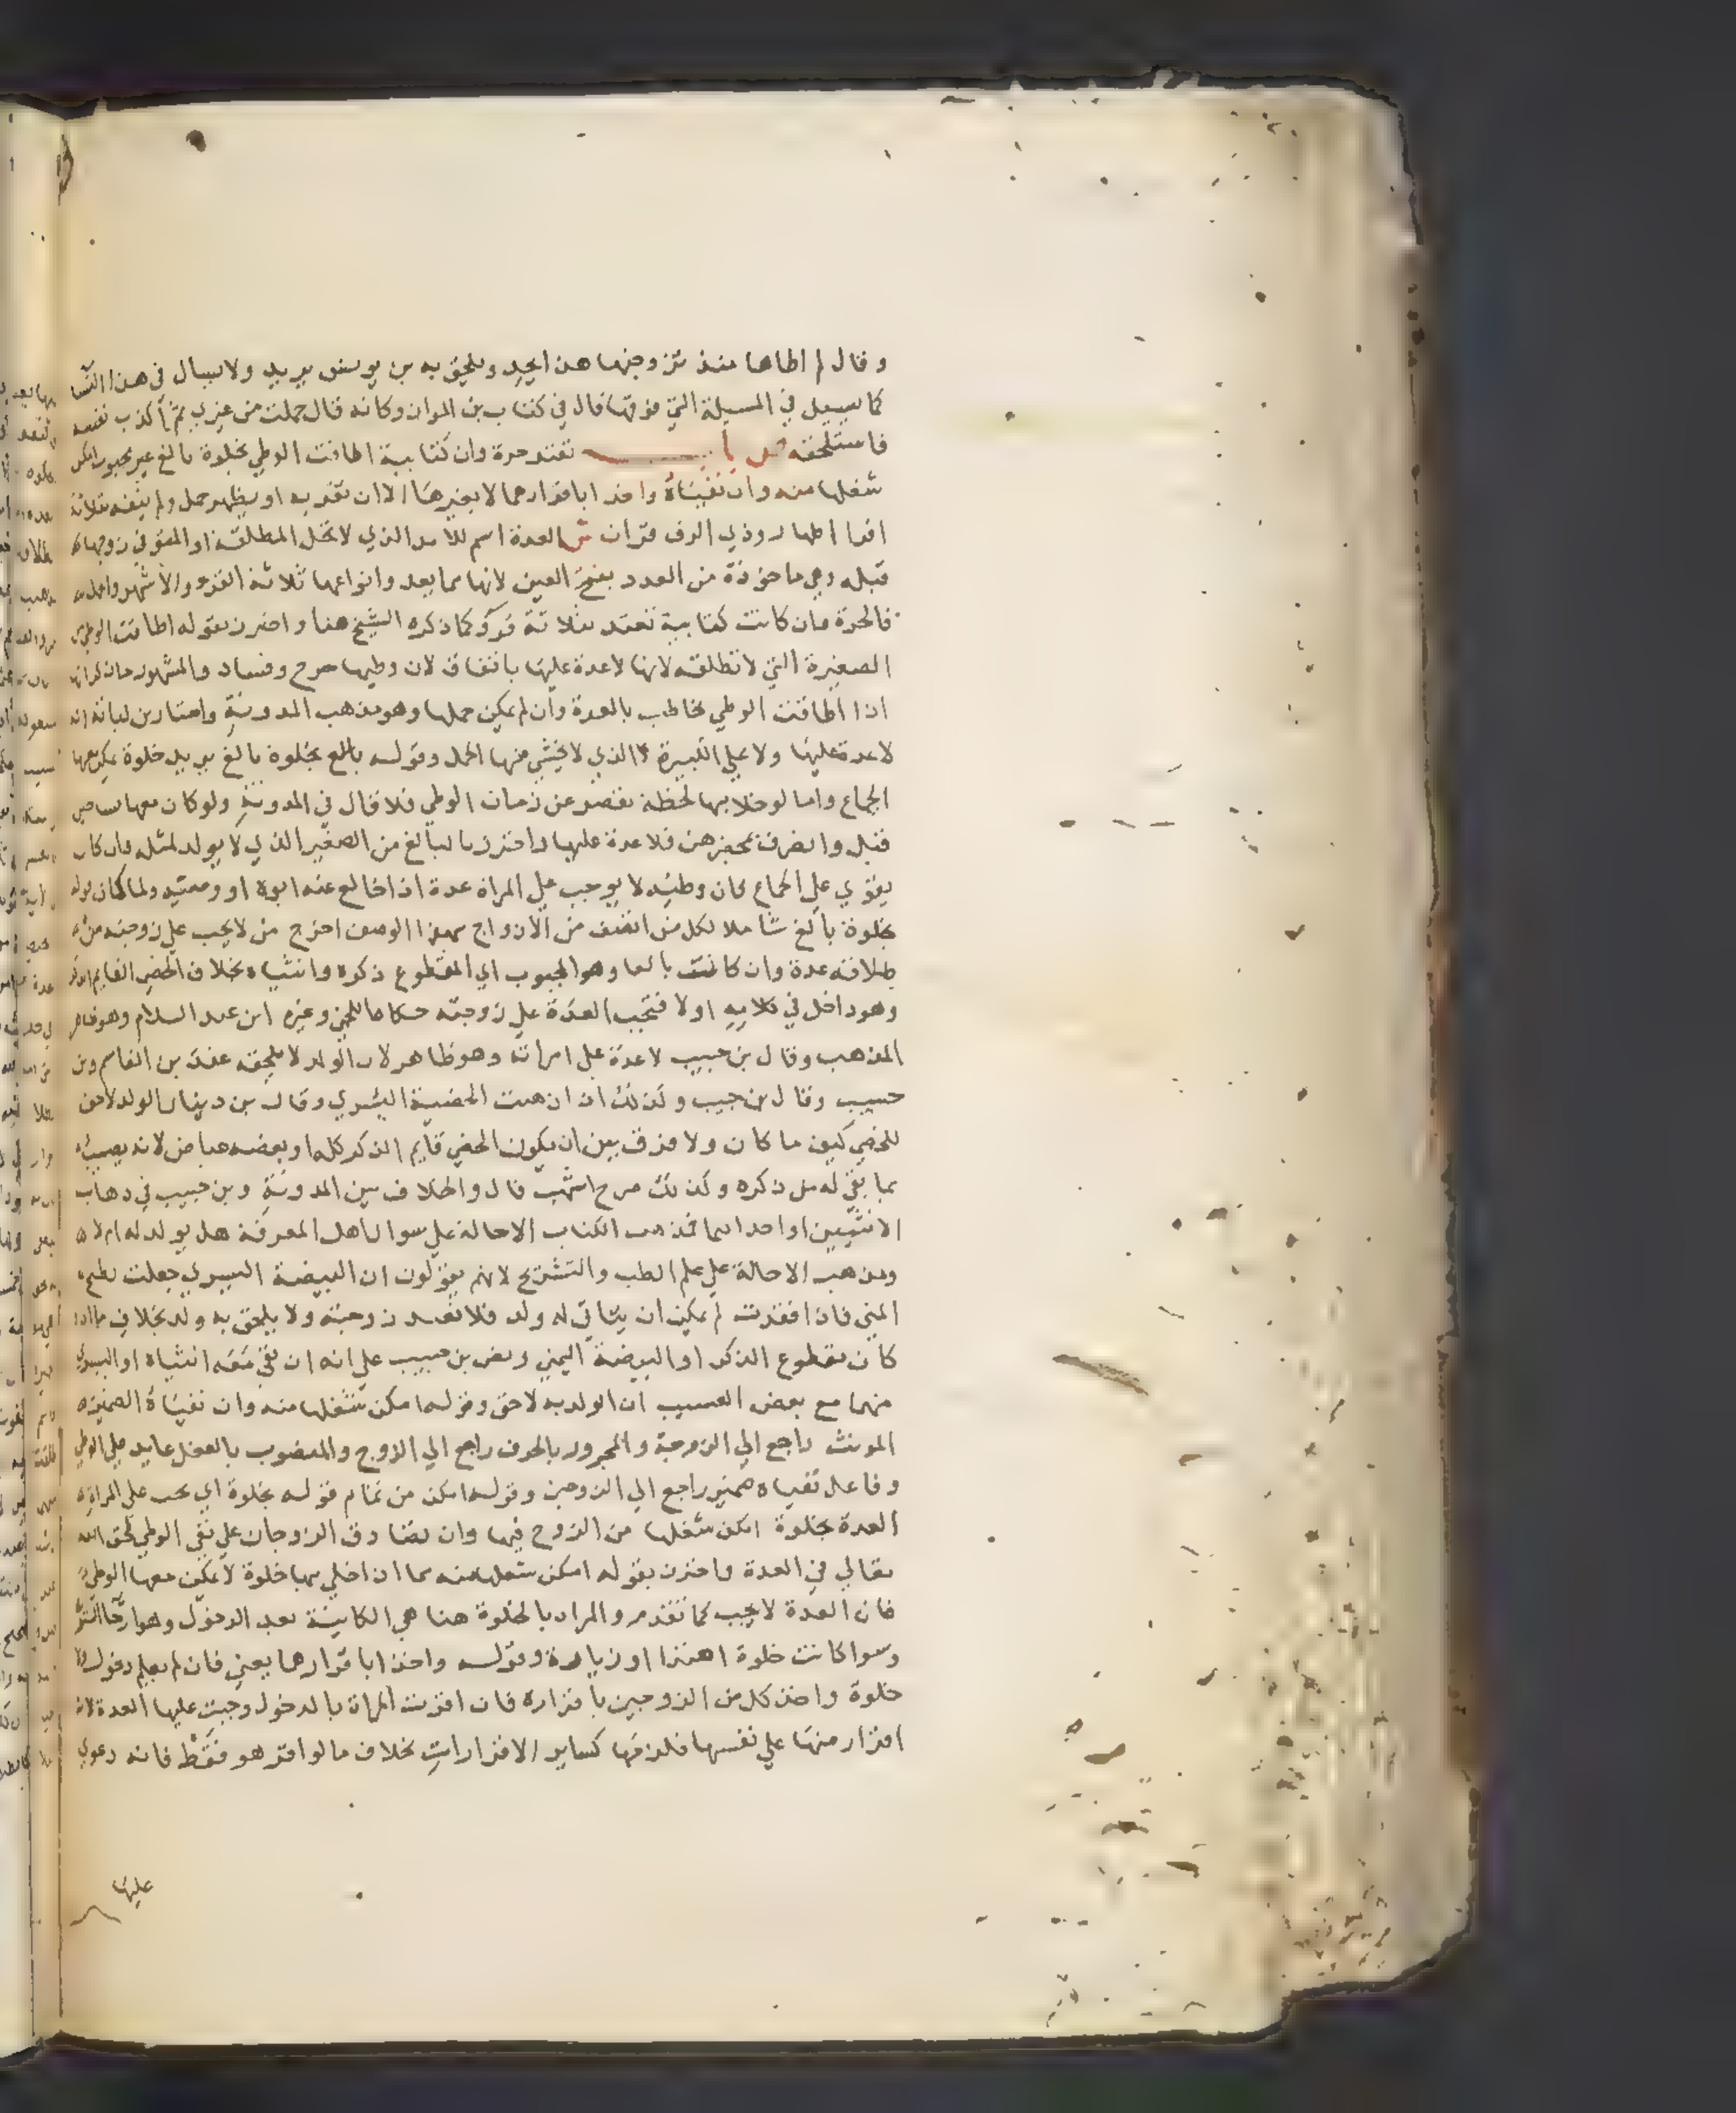 وقال لم اطاها منذ تزوجتها هذا يحد ويلحق به بن يونس يريد ولا يسال في هذا النسا
كما سيل في المسيلة التي فوقها قال في كتاب بن المواز وكانه قال حملت من غيري ثم أكذب نفسه
فاستلحقه باب تعتد حرة وان كتابية اطاقت الوطي بخلوة بالغ غير مجبوب امكن
شغلها منه وان نفياه واخذا باقرارهما لا بغيرها الا ان تقر به او يظهر حمل ولم ينفه بثلاثة
اقرا اطهار وذي الرق قران ش العدة اسم للامد الذي لا تحل المطلقة او المتوفي زوجها
قبله وهي ماخوذة من العدد بفتح العين لانها مما يعد وانواعها ثلاثة القرء والأشهر والحمل
فالحرة وان كانت كتابية تعتد بثلاثة قروء كما ذكره الشيخ هنا واحترز بقوله اطاقت الوطي من
الصغيرة التي لا تطقه لانها لا عدة عليها باتفاق لان وطيها جرح وفساد والمشهور
اذا اطاقت الوطي تخاطب بالعدة وان لم يمكن حملها وهو مذهب المدونة واختار بن لبابة انه
لا عدة عليها ولا علي الكبيرة الذي لا يخشي منها الحمل وقوله بالغ بخلوة بالغ يريد خلوة يمكن معها
الجماع واما لو خلا بها لحظة تقصر عن زمان الوطي فلا قال في المدونة ولو كان معها نسا حين
قبل وانصرف بمحضرهن فلا عدة عليها واحترز بالبالغ من الصغير الذي لا يولد لمثله وان كان
يقوي علي الجماع فان وطيه لا يوجب علي المراة عدة اذا خالع عنه ابوه او وصيه ولما كان قوله
بخلوة بالغ شاملا لكل من اتصف من الازواج بهذا الوصف اخرج من لا يجب علي زوجته من
طلاقه عدة وان كانت بالغا وهو المجبوب اي المقطوع ذكره وانثياه بخلاف الخصي القايم الذكر
وهو داخل في كلامه اولا فتجب العدة علي زوجته حكاها اللخمي وغيره ابن عبد السلام وهو ظاهر
المذهب وقال بن حبيب لا عدة علي امراته وهو ظاهر لان الولد لا يلحقه عند بن القاسم وبن
حبيب وقال بن حبيب وكذلك اذا ذهبت الخصية اليسري وقال بن دينار الولد لاحق
للخصي كيف ما كان ولا فرق بين ان يكون الخصي قايم الذكر كله او بعضه عياض لانه يصيب
بما بقي له من ذكره وكذلك صرح اشهب قال والخلاف بين المدونة وبن حبيب في ذهاب
الانثيين او احداهما فمذهب الكتاب الاحالة علي سوال اهل المعرفة هل يولد له ام لا
ومذهب الاحالة علي علم الطب والتشريح لانهم يقولون ان البيضة اليسري جعلت لطبخ
المني فاذا فقدت لم يمكن ان يتاتي له ولد فلا تعتد زوجته ولا يلحق به ولد بخلاف ما اذا
كان مقطوع الذكر او البيضة اليمني ونص بن حبيب علي انه ان بقي معه انثياه او اليسري
منهما مع بعض العسيب ان الولد به لاحق وقوله امكن شغلها منه وان نفياه الضمير
المونث راجع الي الزوجة والمجرور بالحرف راجع الي الزوج والمنصوب بالفعل عايد علي الوطي
وفاعل نفياه ضمير راجع الي الزوجين وقوله امكن من تمام قوله بخلوة اي يجب علي المراة
العدة بخلوة امكن شغلها من الزوج فيها وان تصادق الزوجان علي نفي الوطي لحق الله
تعالي في العدة واحترز بقوله امكن شغلها منه مما اذا اخلي بها خلوة لا يمكن معها الوطي
فان العدة لا تجب كما تقدم والمراد بالخلوة هنا هي الكاينة بعد الدخول وهو ارخا الستر
وسوا كانت خلوة اهتدا او زيارة وقوله واخذا باقرارهما يعني فان لم يعلم دخول ولا
خلوة واخذ كل من الزوجين باقراره فان اقرت المراة بالدخول وجبت عليها العدة لانه
اقرار منها علي نفسها فلزمها كساير الاقرارات بخلاف ما لو اقر هو فقط فانه دعوي
عليها